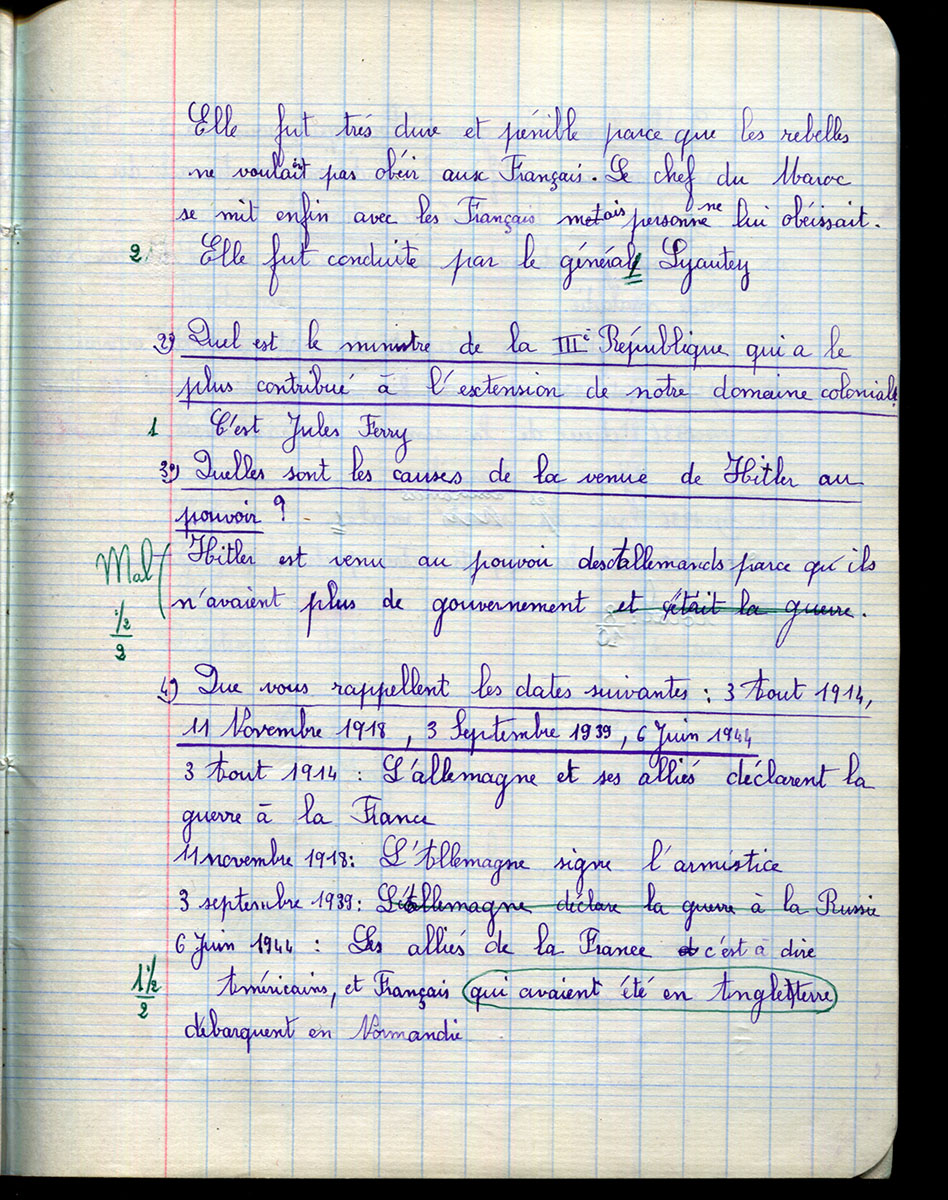 Elle fut très dure et pénible parce que les rebelles
ne voulaient pas obéir aux Français. Le chef du Maroc
se mit enfin avec les Français mais personne ne lui obéissait.
2 Elle fut conduite par le général Lyautey
2) Quel est le ministre de la IIIe République qui a le
plus contribué à l'extension de notre domaine colonial.
1 C'est Jules Ferry
3) Quelles sont les causes de la venue de Hitler au
pouvoir ?
Mal Hitler est venu au pouvoir des allemands parce qu'ils
n'avaient plus de gouvernement et c'était la guerre.
½/2
4) Que vous rappellent les dates suivantes : 3 Aout 1914,
11 Novembre 1918, 3 Septembre 1939, 6 Juin 1944
3 Aout 1914 : L'allemagne et ses alliés déclarent la
guerre à la France
11 novembre 1918 : L'Allemagne signe l'armistice
3 septembre 1939 : L'allemagne déclare la guerre à la Russie
6 Juin 1944 : Les alliés de la France c'est à dire
1½/2 Américains, et Français qui avaient été en Angleterre
débarquent en Normandie